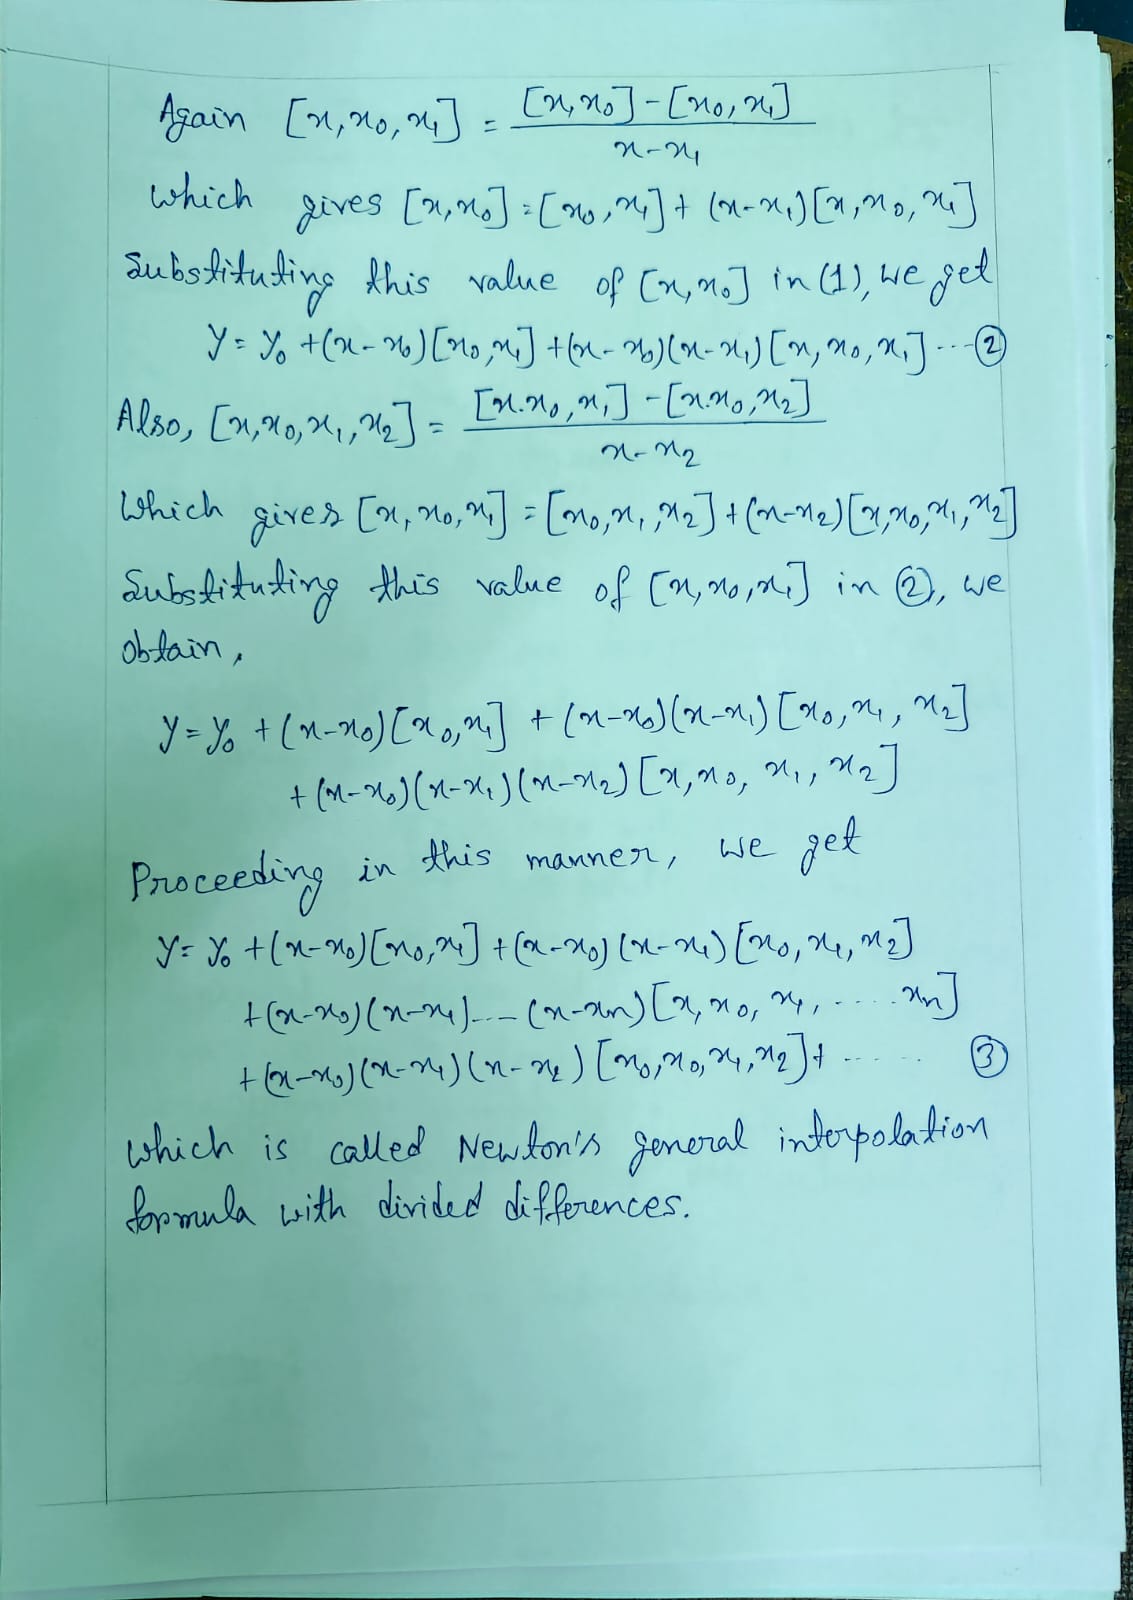 Again [x, x₀, x₁] = ([x, x₀] - [x₀, x₁]) / (x - x₁)
which gives [x, x₀] = [x₀, x₁] + (x - x₁)[x, x₀, x₁]
Substituting this value of [x, x₀] in (1), we get
y = y₀ + (x - x₀)[x₀, x₁] + (x - x₀)(x - x₁)[x, x₀, x₁] ---- ②
Also, [x, x₀, x₁, x₂] = ([x.x₀, x₁] - [x.x₀, x₂]) / (x - x₂)
Which gives [x, x₀, x₁] = [x₀, x₁, x₂] + (x - x₂)[x, x₀, x₁, x₂]
Substituting this value of [x, x₀, x₁] in ②, we
obtain,
y = y₀ + (x - x₀)[x₀, x₁] + (x - x₀)(x - x₁)[x₀, x₁, x₂]
+ (x - x₀)(x - x₁)(x - x₂)[x, x₀, x₁, x₂]
Proceeding in this manner, we get
y = y₀ + (x - x₀)[x₀, x₁] + (x - x₀)(x - x₁)[x₀, x₁, x₂]
+ (x - x₀)(x - x₁)--- (x - xn)[x, x₀, x₁, ..... xn]
+ (x - x₀)(x - x₁)(x - x₂)[x₀, x₀, x₁, x₂] + ...... ③
which is called Newton's general interpolation
formula with divided differences.